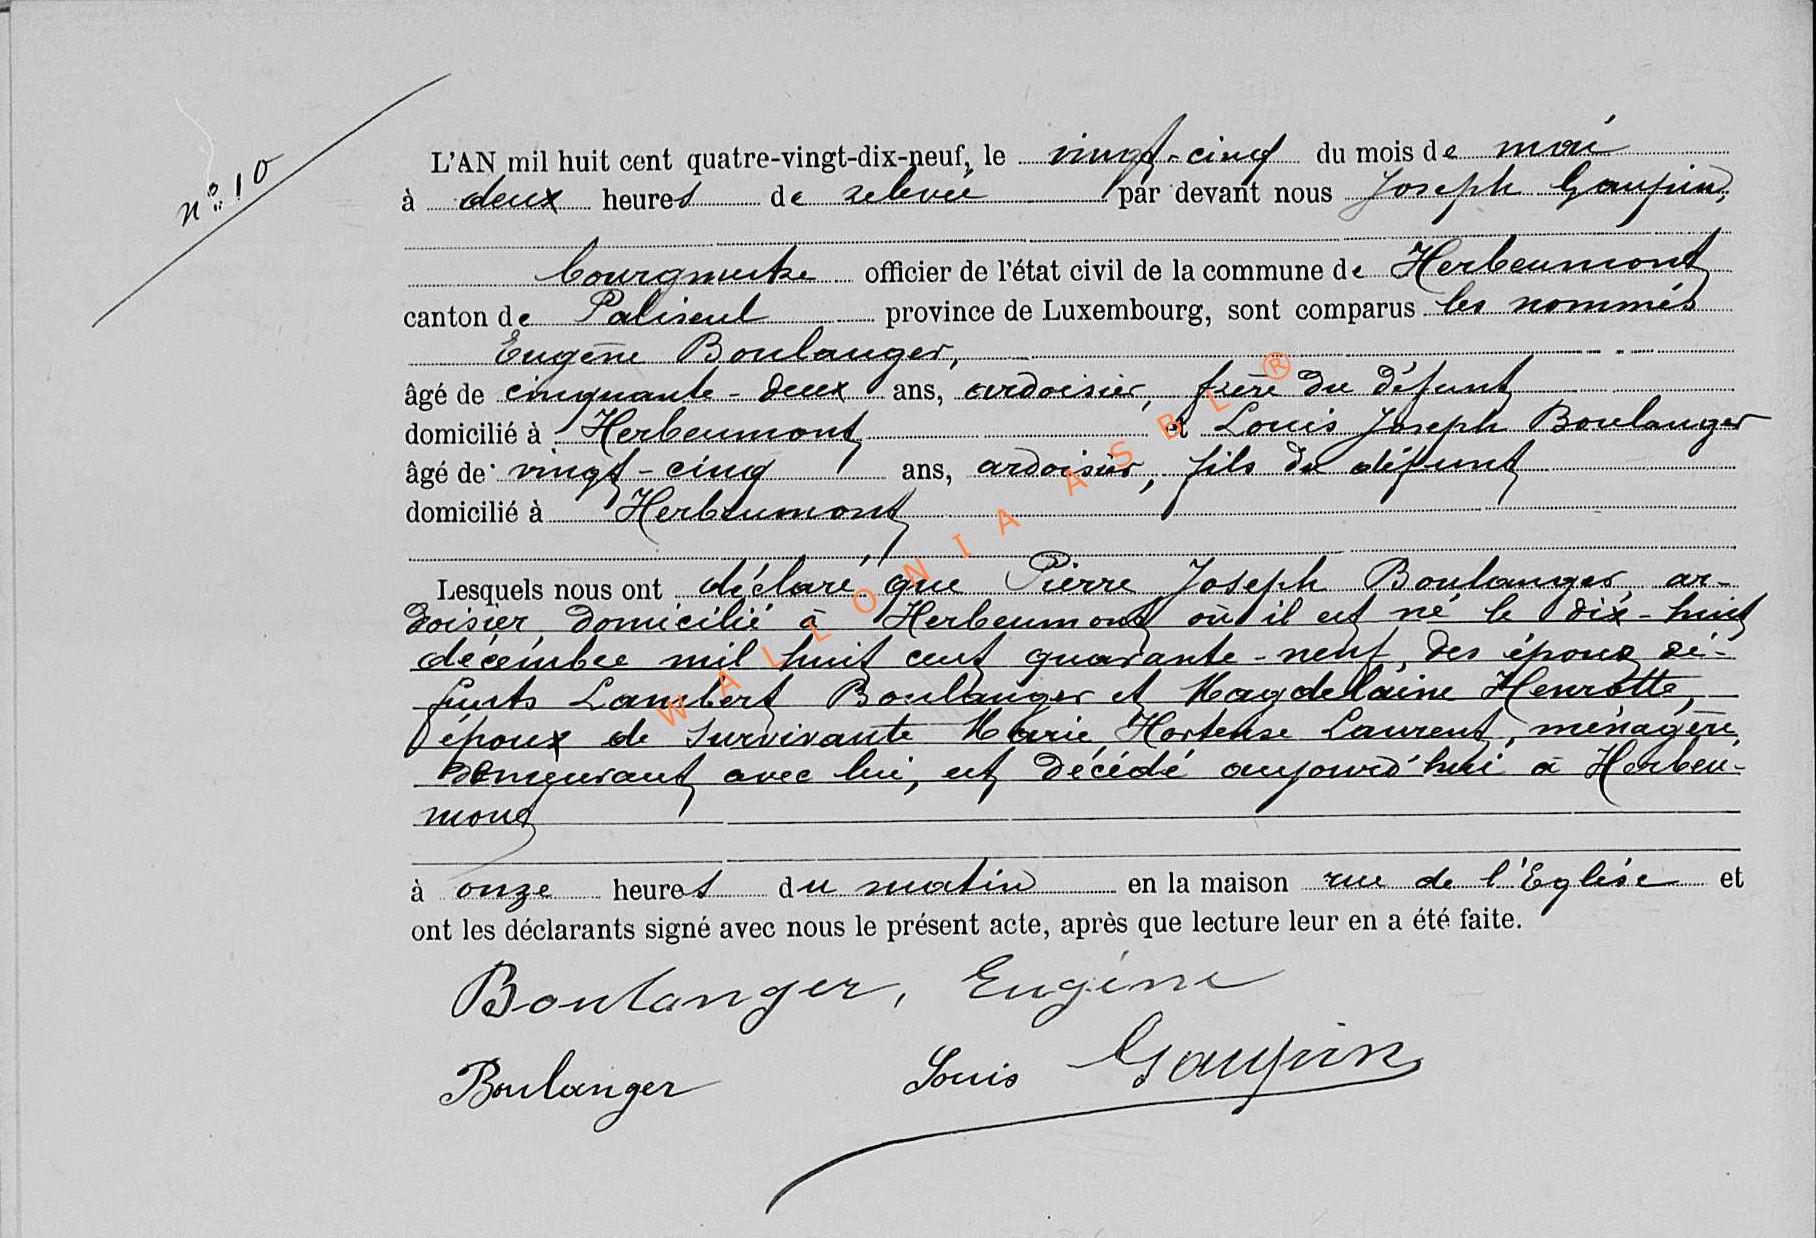 N° 10
L'AN mil huit cent quatre-vingt-dix-neuf, le vingt-cinq du mois de mai
à deux heures de relevée par devant nous Joseph Gaupin,
bourgmestre officier de l'état civil de la commune de Herbeumont
canton de Paliseul province de Luxembourg, sont comparus les nommés
Eugène Boulanger,
âgé de cinquante-deux ans, ardoisier, frère du défunt
domicilié à Herbeumont et Louis Joseph Boulanger
âgé de vingt-cinq ans, ardoisier, fils du défunt
domicilié à Herbeumont
Lesquels nous ont déclaré que Pierre Joseph Boulanger, ar-
doisier, domicilié à Herbeumont où il est né le dix-huit
décembre mil huit cent quarante-neuf, des époux dé-
funts Lambert Boulanger et Magdelaine Henrotte,
époux de survivante Marie Hortense Laurent, ménagère
demeurant avec lui, est décédé aujourd'hui à Herbeu-
mont
à onze heures du matin en la maison rue de l'Eglise et
ont les déclarants signé avec nous le présent acte, après que lecture leur en a été faite.
Boulanger, Eugène
Boulanger Louis Gaupin
WALLONIA ASBL ®